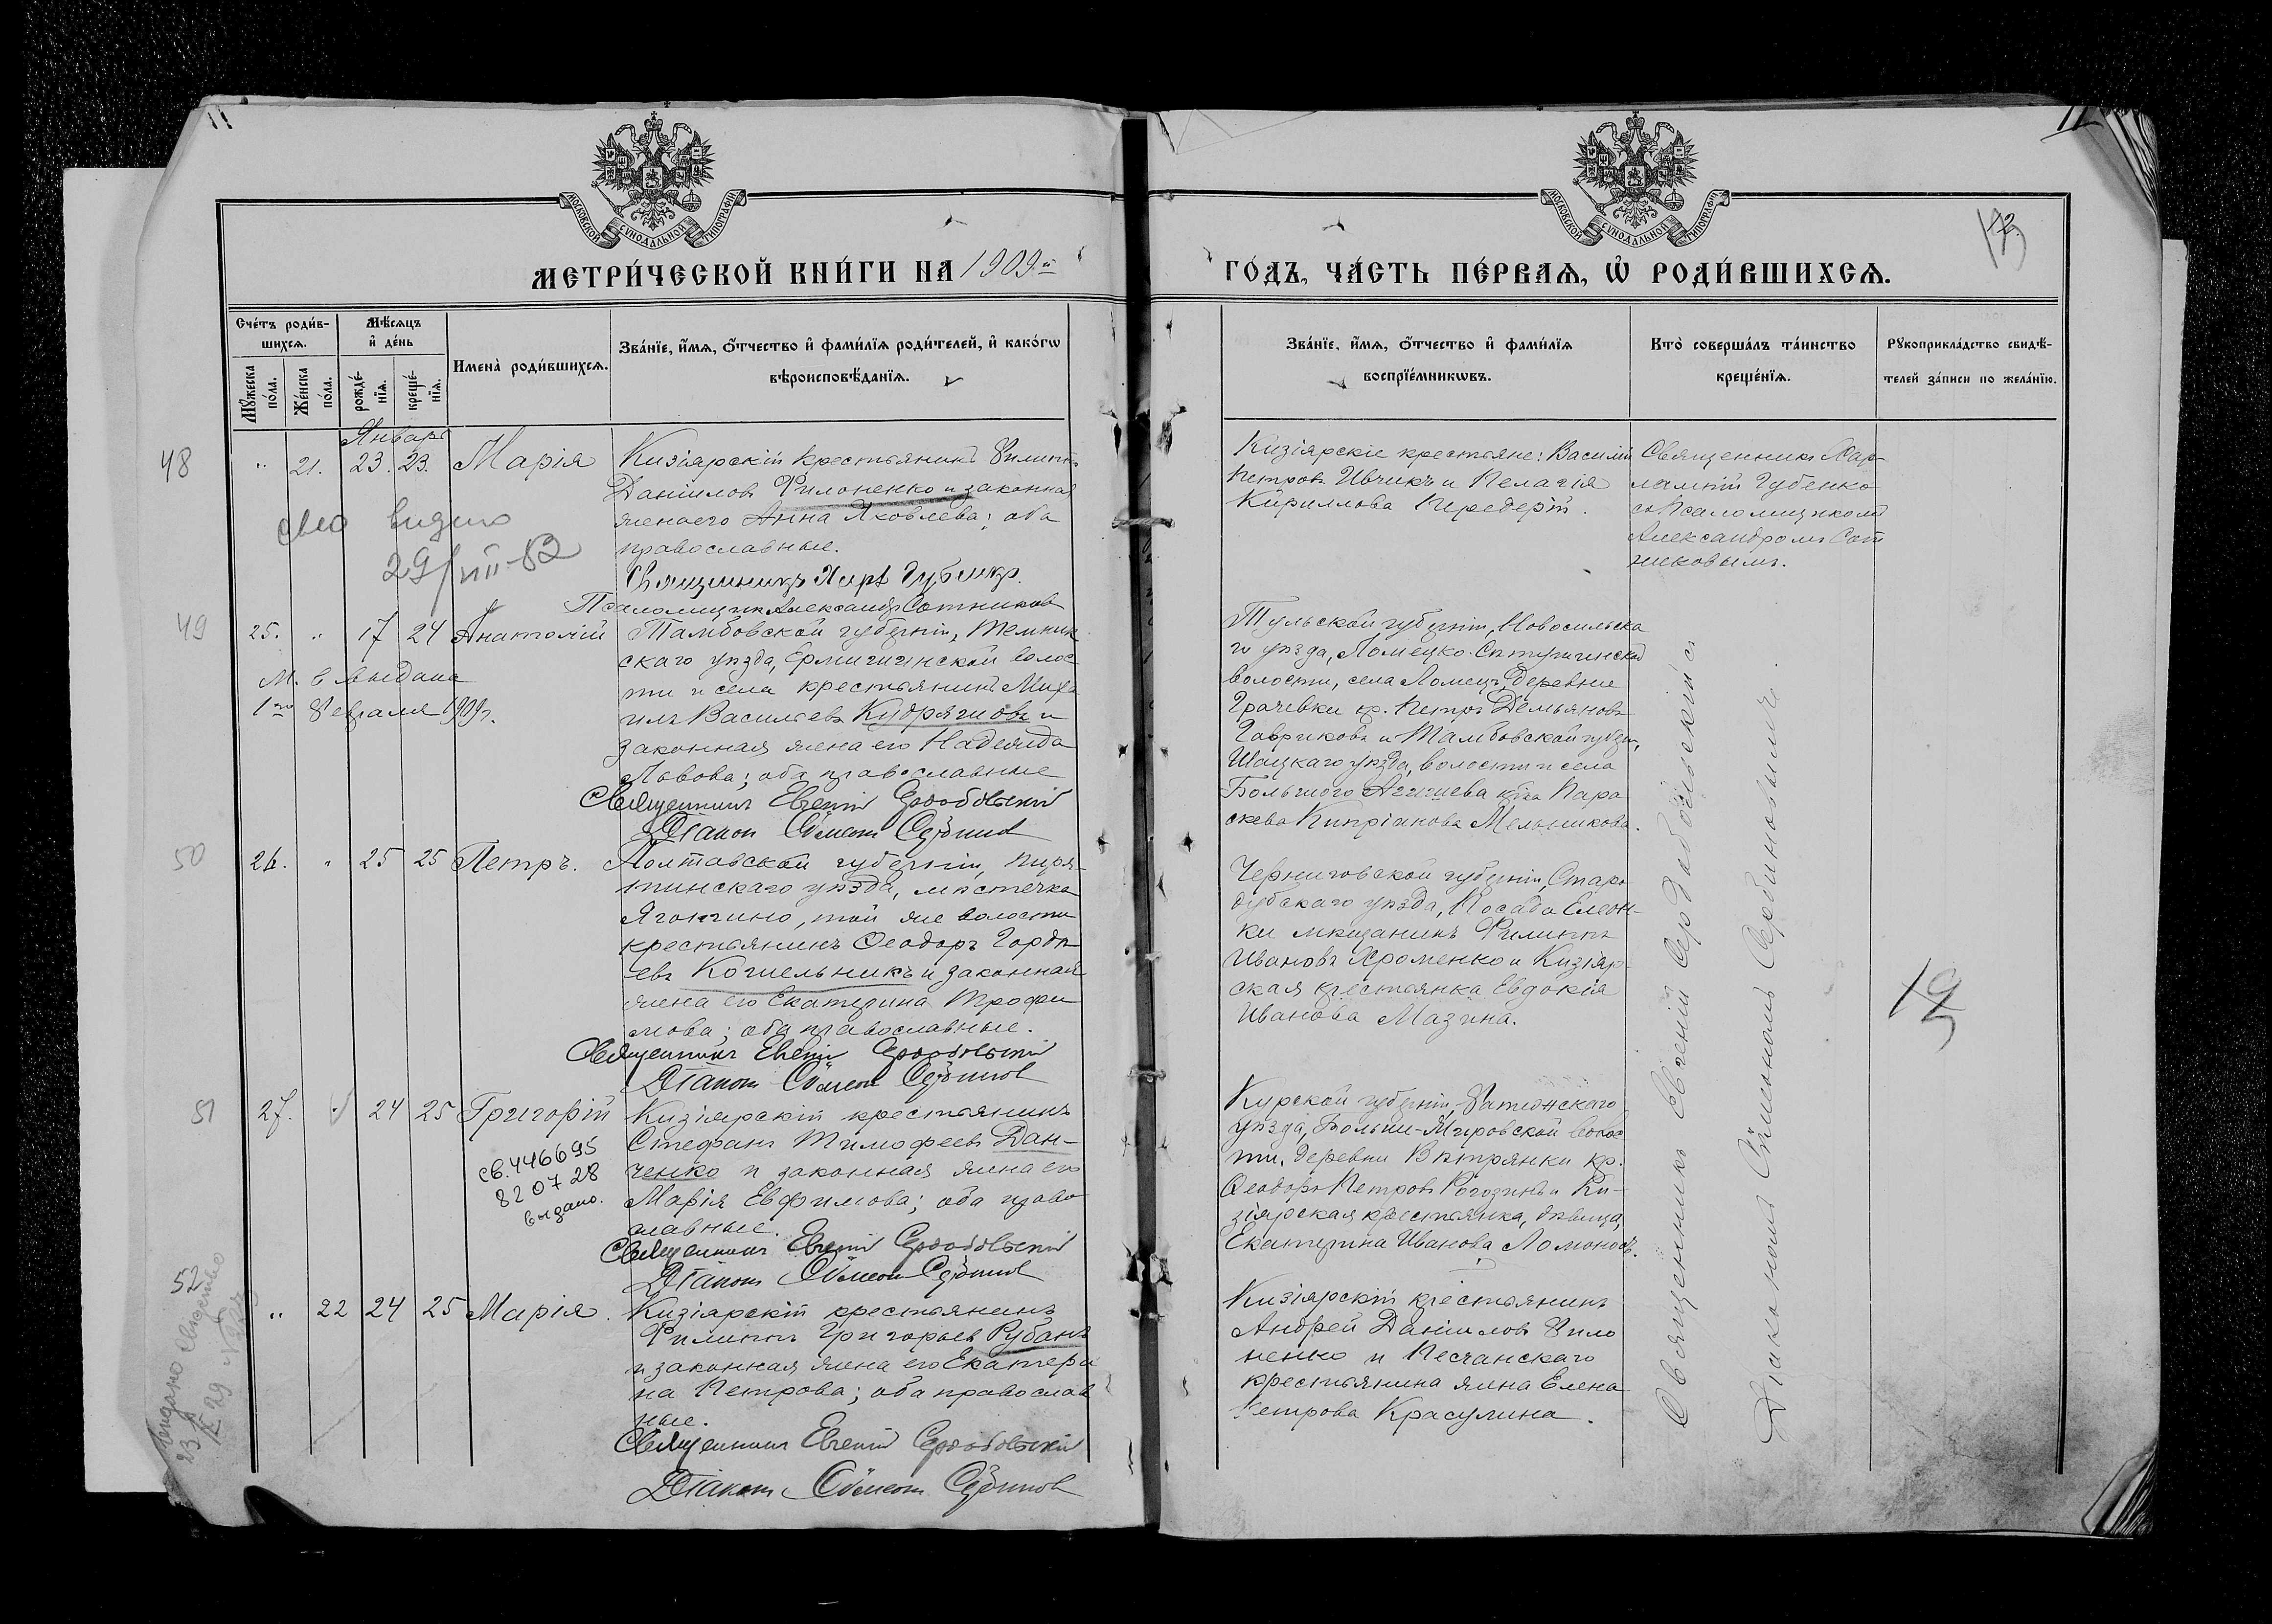 11
12
МОСКОВСКОЙ СѴНОДАЛЬНОЙ ТИПОГРАФІИ
МОСКОВСКОЙ СѴНОДАЛЬНОЙ ТИПОГРАФІИ
МЕТРИ́ЧЕСКОЙ КНИ́ГИ НА 1909 й
ГО́ДЪ, ЧА́СТЬ ПЕ́РВАѦ, Ѽ РОДИ́ВШИХСѦ.
Сче́тъ роди́в-
шихсѧ.
Мѣ́сѧцъ
и҆ де́нь
Мꙋ́жеска
по́ла.
Же́нска
по́ла.
рожде́-
нїѧ.
креще́-
нїѧ.
Имена̀ роди́вшихсѧ.
Зва́нїе, и҆́мѧ, ѻ҆́тчество и҆ фами́лїѧ роди́телей, и҆ како́гѡ
вѣроисповѣ́данїѧ.
Зва́нїе, и҆́мѧ, ѻ҆́тчество и҆ фами́лїѧ
воспрїе́мникѡвъ.
Кто̀ соверша́лъ та́инство
креще́нїѧ.
Рꙋкоприкла́дство свидѣ́-
телей за́писи по жела́нїю.
Январь
48
" 21. 23. 23. Марія
Кизіярскій крестьянинъ Филиппъ
Даніиловъ Филоненко и законная
жена его Анна Яковлева; оба
православные.
Священникъ Харл Губенко.
Псаломщик Александр Сотников
29/VIII-52
Кизіярскіе крестьяне: Василій
Петровъ Ивчикъ и Пелагія
Кириллова Передерій.
Священникъ Хар-
лампій Губенко
съ Псаломщикомъ
Александромъ Сот
никовымъ.
49
25. " 17 24 Анатолій
М. в выдана
1го Февраля 1909г.
Тамбовской губерніи, Темник
скаго уѣзда, Ермишинской волос
ти и села крестьянинъ Миха
илъ Васильевъ Кудряшовъ и
законная жена его Надежда
Львова; оба православные
Священникъ Евгеній Сердобольскій
Діаконъ Сѵмеонъ Сербиновъ
Тульской губерніи, Новосильска
го уѣзда, Ломецко-
волости, села Ломецъ, деревни
Грачевки кр. Петръ Демьяновъ
Гавриковъ и Тамбовской губерн,
Шацкаго уѣзда, волости и села
Большого Агишева кр-ка Пара
скева Кипріанова Мельникова.
50
26. " 25 25 Петръ.
Полтавской губерніи, Пиря-
тинскаго уѣзда, мѣстечка
Яготино, той же волости
крестьянинъ Ѳеодоръ Гордѣ
евъ Кошельникъ и законная
жена его Екатерина Трофи
мова; оба православные.
Священникъ Евгеній Сердобольскій
Діаконъ Сѵмеонъ Сербиновъ
Черниговской губерніи, Старо
дубскаго уѣзда, Посада Елеон-
ки мѣщанинъ Филиппъ
Ивановъ Хроменко и Кизіяр-
ская крестьянка Евдокія
Иванова Мазина.
51
27. " 24 25 Григорій
св. 446695
82 07 28
выдано.
Кизіярскій крестьянинъ
Стефанъ Тимофеевъ Дан-
ченко и законная жена его
Марія Евфимова; оба право
славные.
Священникъ Евгеній Сердобольскій
Діаконъ Сѵмеонъ Сербиновъ
Курской губерніи, Фатежскаго
уѣзда, Больше-Жировской волос
ти, деревни Вѣтрянки кр.
Ѳеодоръ Петровъ Рогозинъ и Ки-
зіярская крестьянка, дѣвица,
Екатерина Иванова Ломоносъ.
52
" 22 24 25 Марія.
Кизіярскій крестьянинъ
Филиппъ Григорьевъ Рубанъ
и законная жена его Екатери
на Петрова; оба православ
ные.
Священникъ Евгеній Сердобольскій
Діаконъ Сѵмеонъ Сербиновъ
Кизіярскій крестьянинъ
Андрей Даніиловъ Фило
ненко и Песчанскаго
крестьянина жена Елена
Петрова Красулина.
Священникъ Евгеній Сердобольскій съ
Діакономъ Сѵмеономъ Сербиновымъ.